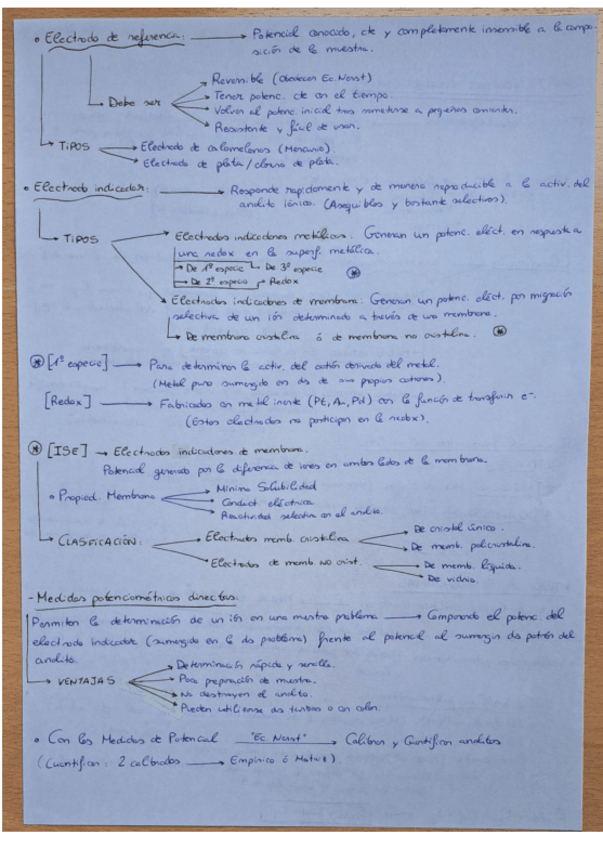 • Electrodo de referencia: → Potencial conocido, cte y completamente insensible a la compo-
sición de la muestra.
→ Debe ser
→ Reversible (obedecer Ec. Nernst)
→ Tener potenc. cte en el tiempo.
→ Volver al potenc. inicial tras someterse a pequeñas corrientes.
→ Resistente y fácil de usar.
→ TIPOS → Electrodo de calomelanos (Mercurio).
→ Electrodo de plata/cloruro de plata.
• Electrodo indicador: → Responde rápidamente y de manera reproducible a la activ. del
analito iónico. (Asequibles y bastante selectivos).
→ TIPOS → Electrodos indicadores metálicos: Generan un potenc. eléct. en respuesta a
una redox en la superf. metálica.
→ De 1ª especie → De 3ª especie
→ De 2ª especie → Redox
→ Electrodos indicadores de membrana: Generan un potenc. eléct. por migración
selectiva de un ión determinado a través de una membrana.
→ De membrana cristalina ó de membrana no cristalina.
[1ª especie] → Para determinar la activ. del catión derivado del metal.
(Metal puro sumergido en ds de sus propios cationes).
[Redox] → Fabricados en metal inerte (Pt, Au, Pd) con la función de transferir e-.
(Estos electrodos no participan en la redox).
[ISE] → Electrodos indicadores de membrana.
Potencial generado por la diferencia de iones en ambos lados de la membrana.
• Propied. Membrana → Mínima Solubilidad
→ Conduct. eléctrica
→ Reactividad selectiva con el analito.
→ CLASFICACIÓN: → Electrodos memb. cristalina → De cristal único.
→ De memb. policristalina.
→ Electrodos de memb. NO crist. → De memb. líquida.
→ De vidrio.
- Medidas potenciométricas directas:
Permiten la determinación de un ión en una mestra problema → Comparando el potenc. del
electrodo indicador (sumergido en la ds problema) frente al potencial al sumergir ds patrón del
analito.
→ VENTAJAS → Determinación rápida y sencilla.
→ Poca preparación de muestra.
→ No destruyen el analito.
→ Pueden utilizarse ds turbias o con color.
• Con las Medidas de Potencial "Ec Nernst" → Calibrar y Cuantifican analitos
(Cuantifican: 2 calibrados → Empírico ó Matriz).